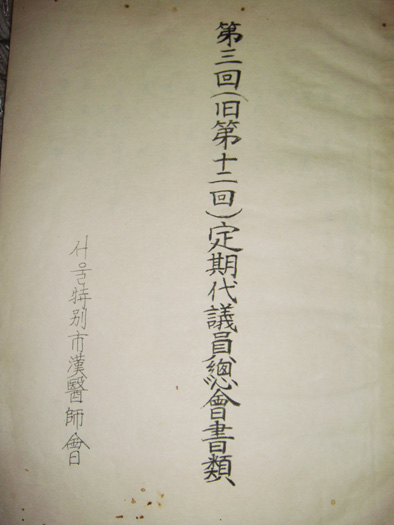 第三回(旧第十二回)定期代議員總會書類
서울特别市漢醫師會